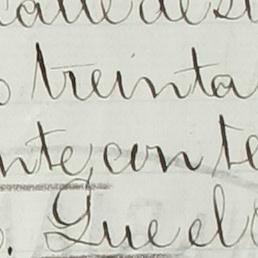 calle de s
o treinta
nte con te
. Que el